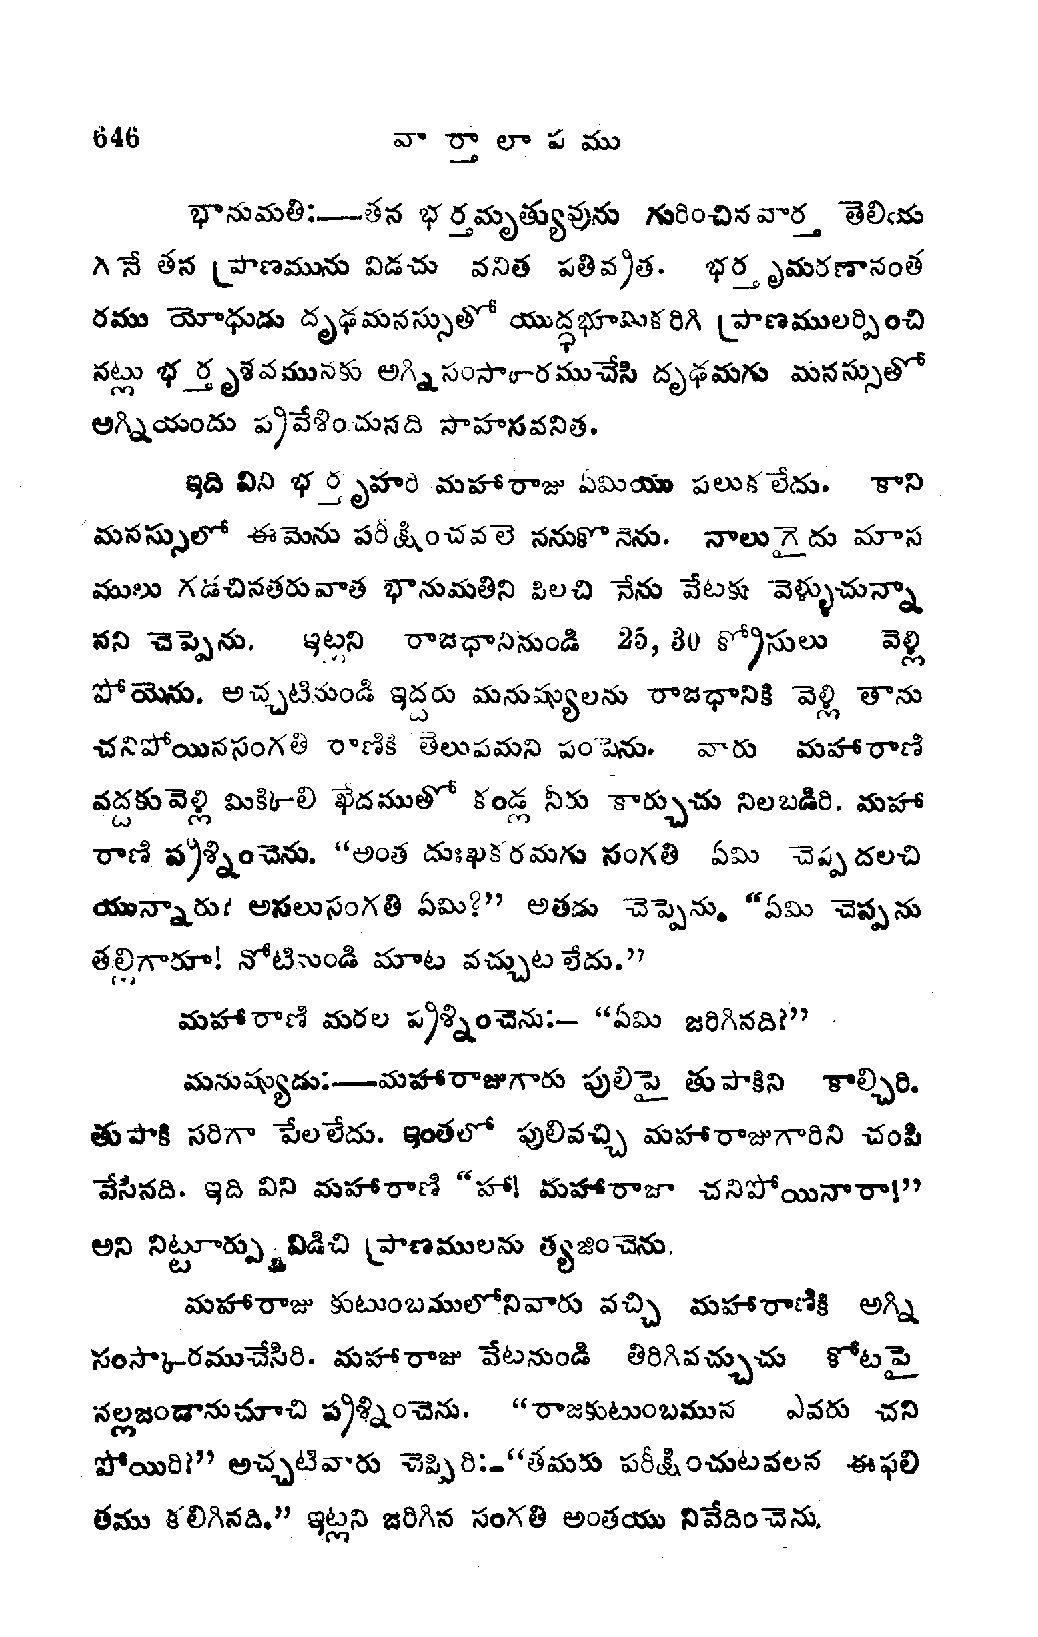 646 వా ర్తా లా ప ము
భానుమతి:—తన భర్తమృత్యువును గురించినవార్త తెలియ
గానే తన ప్రాణమును విడచు వనిత పతివ్రత. భర్తృమరణానంత
రము యోధుడు దృఢమనస్సుతో యుద్ధభూమికరిగి ప్రాణములర్పించి
నట్లు భర్తృశవమునకు అగ్నిసంస్కారముచేసి దృఢమగు మనస్సుతో
అగ్నియందు ప్రవేశించునది సాహసవనిత.
ఇది విని భర్తృహరి మహారాజు ఏమియు పలుకలేదు. కాని
మనస్సులో ఈమెను పరీక్షించవలె ననుకొనెను. నాలుగైదు మాస
ములు గడచినతరువాత భానుమతిని పిలచి నేను వేటకు వెళ్ళుచున్నా
నని చెప్పెను. ఇట్లని రాజధానినుండి 25, 30 క్రోసులు వెల్లి
పోయెను. అచ్చటినుండి ఇద్దరు మనుష్యులను రాజధానికి వెల్లి తాను
చనిపోయినసంగతి రాణికి తెలుపమని పంపెను. వారు మహారాణి
వద్దకువెల్లి మిక్కిలి ఖేదముతో కండ్ల నీరు కార్చుచు నిలబడిరి. మహా
రాణి ప్రశ్నించెను. “అంత దుఃఖకరమగు సంగతి ఏమి చెప్పదలచి
యున్నారు? అసలుసంగతి ఏమి?” అతడు చెప్పెను. “ఏమి చెప్పను
తల్లిగారూ! నోటినుండి మాట వచ్చుటలేదు.”
మహారాణి మరల ప్రశ్నించెను:— “ఏమి జరిగినది?”
మనుష్యుడు:—మహారాజుగారు పులిపై తుపాకిని కాల్చిరి.
తుపాకి సరిగా పేలలేదు. ఇంతలో పులివచ్చి మహారాజుగారిని చంపి
వేసినది. ఇది విని మహారాణి “హా! మహారాజా చనిపోయినారా!”
అని నిట్టూర్పు విడిచి ప్రాణములను త్యజించెను.
మహారాజు కుటుంబములోనివారు వచ్చి మహారాణికి అగ్ని
సంస్కారముచేసిరి. మహారాజు వేటనుండి తిరిగివచ్చుచు కోటపై
నల్లజండానుచూచి ప్రశ్నించెను. “రాజకుటుంబమున ఎవరు చని
పోయిరి?” అచ్చటివారు చెప్పిరి:-“తమరు పరీక్షించుటవలన ఈఫలి
తము కలిగినది.” ఇట్లని జరిగిన సంగతి అంతయు నివేదించెను.